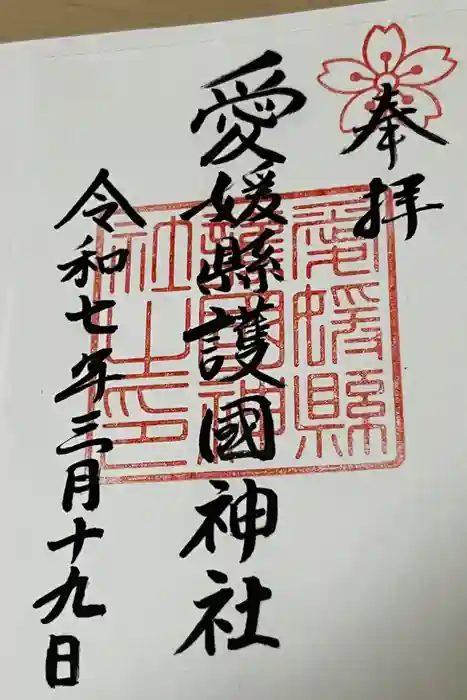 奉拝
愛媛縣護國神社
愛媛縣
護國神
社之印
令和七年三月十九日